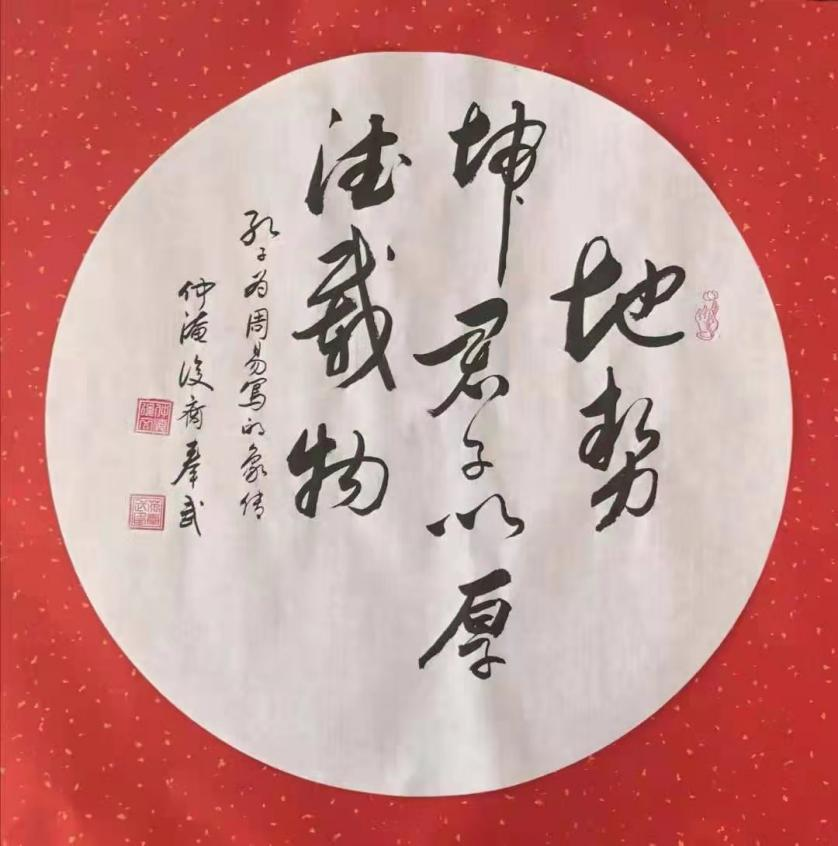 地势
坤君子以厚
德载物
孔子为周易写的象传
仲淹后裔奉武